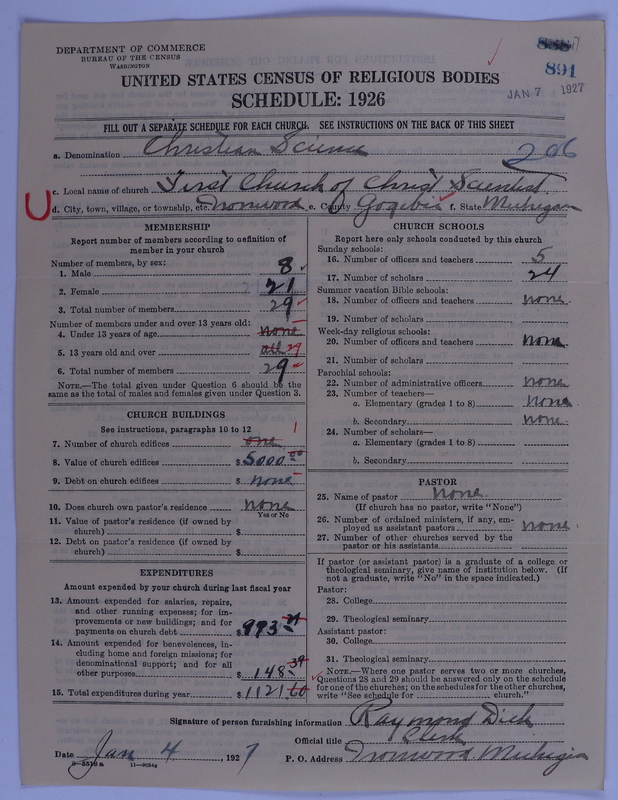 DEPARTMENT OF COMMERCE
BUREAU OF THE CENSUS
WASHINGTON
891
JAN 7 1927
UNITED STATES CENSUS OF RELIGIOUS BODIES
SCHEDULE: 1926
FILL OUT A SEPARATE SCHEDULE FOR EACH CHURCH. SEE INSTRUCTIONS ON THE BACK OF THIS SHEET
a. Denomination Christian Science 206
c. Local name of church First Church of Christ Scientist,
d. City, town, village, or township, etc. Ironwood e. County Gogebic f. State Michigan
MEMBERSHIP
Report number of members according to definition of
member in your church
Number of members, by sex:
1. Male 8
2. Female 21
3. Total number of members 29
Number of members under and over 13 years old:
4. Under 13 years of age none
5. 13 years old and over all 29
6. Total number of members 29
NOTE.—The total given under Question 6 should be the
same as the total of males and females given under Question 3.
CHURCH BUILDINGS
See instructions, paragraphs 10 to 12
7. Number of church edifices one 1
8. Value of church edifices $ 5000 00
9. Debt on church edifices $ none
10. Does church own pastor's residence none
Yes or No
11. Value of pastor's residence (if owned by
church) $
12. Debt on pastor's residence (if owned by
church) $
EXPENDITURES
Amount expended by your church during last fiscal year
13. Amount expended for salaries, repairs,
and other running expenses; for im-
provements or new buildings; and for
payments on church debt $ 973 21
14. Amount expended for benevolences, in-
cluding home and foreign missions; for
denominational support; and for all
other purposes $ 148 39
15. Total expenditures during year $ 1121 60
CHURCH SCHOOLS
Report here only schools conducted by this church
Sunday schools:
16. Number of officers and teachers 5
17. Number of scholars 24
Summer vacation Bible schools:
18. Number of officers and teachers none
19. Number of scholars
Week-day religious schools:
20. Number of officers and teachers none
21. Number of scholars
Parochial schools:
22. Number of administrative officers none
23. Number of teachers—
a. Elementary (grades 1 to 8) none
b. Secondary none
24. Number of scholars—
a. Elementary (grades 1 to 8)
b. Secondary
PASTOR
25. Name of pastor none
(If church has no pastor, write "None")
26. Number of ordained ministers, if any, em-
ployed as assistant pastors none
27. Number of other churches served by the
pastor or his assistants
If pastor (or assistant pastor) is a graduate of a college or
theological seminary, give name of institution below. (If
not a graduate, write "No" in the space indicated.)
Pastor:
28. College
29. Theological seminary
Assistant pastor:
30. College
31. Theological seminary
NOTE.—Where one pastor serves two or more churches,
Questions 28 and 29 should be answered only on the schedule
for one of the churches; on the schedules for the other churches,
write "See schedule for church."
Signature of person furnishing information Raymond Dick
Official title Clerk
Date Jan 4, 1927 P. O. Address Ironwood Michigan